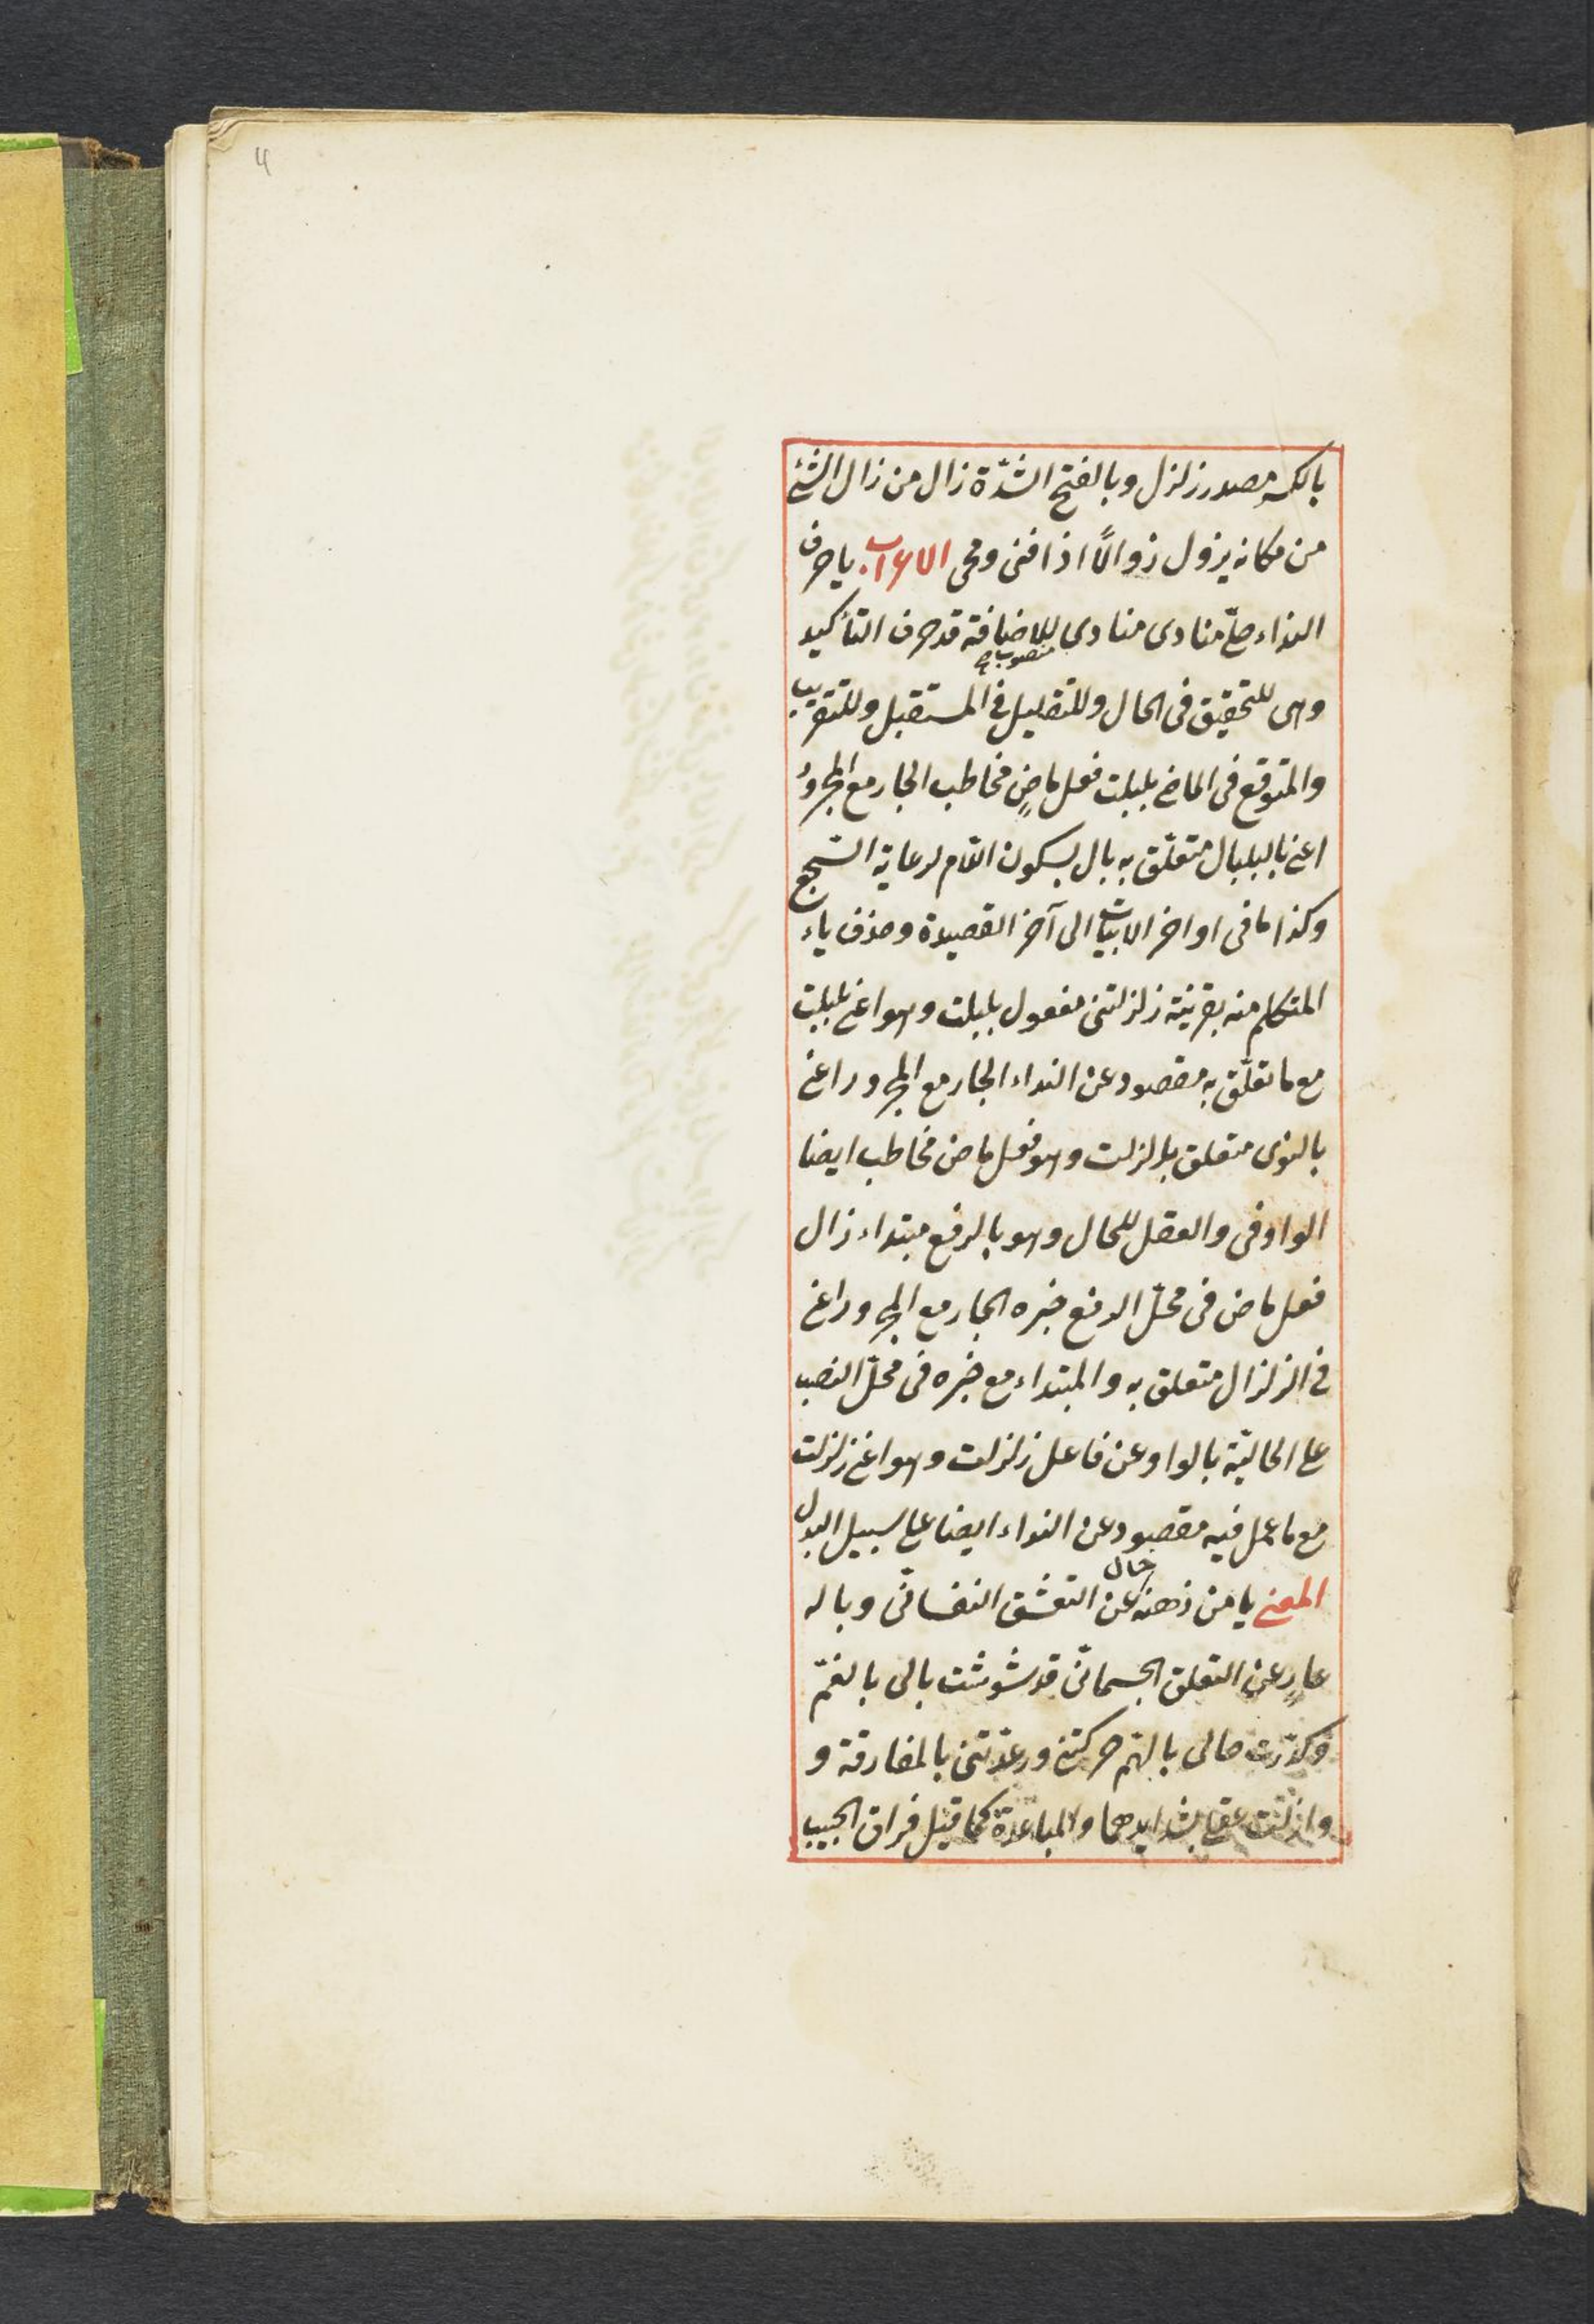 4
بالكسر مصدر زلزل وبالفتح الشدّة زال من زال الشئ
من مكانه يزول زوالًا اذا فنى ومحى الاعراب . يا حرف
النداء خلّ منادى منادى للاضافة قد حرف التأكيد
منصوب صح
وهى للتحقيق فى الحال وللتقليل فى المستقبل وللتقريب
والمتوقع فى الماضى بلبلت فعل ماضٍ مخاطب الجار مع المجرور
اعنى بالبلبال متعلّق به بال بسكون اللام لرعاية السّجع
وكذا ما فى اواخر الابيات الى آخر القصيدة وحذف ياء
المتكلم منه بقرينة زلزلتنى مفعول بلبلت وهو اعنى بلبلت
مع ما تعلّق به مقصود عن النداء الجار مع المجرور اعنى
بالنوى متعلق بزلزلت وهو فعل ماض مخاطب ايضا
الواو فى والعقل للحال وهو بالرفع مبتداء زال
فعل ماض فى محلّ الرفع خبره الجار مع المجرور اعنى
فى الزلزال متعلق به والمبتداء مع خبره فى محلّ النصب
على الحاليّة بالواو عن فاعل زلزلت وهو اعنى زلزلت
مع ما عمل فيه مقصود عن النداء ايضا على سبيل البدل
المعنى يا من ذهنه خال عن التعشق النفسانّى وباله
عارٍ عن التعلق الجسمانّى قد شوشت بالى بالغمّ
وكدّرت حالى بالهّم حركتنى ورعدتنى بالمفارقة و
وازلت عقلى بشدايدهما والمباعدة كما قيل فراق الحبيب